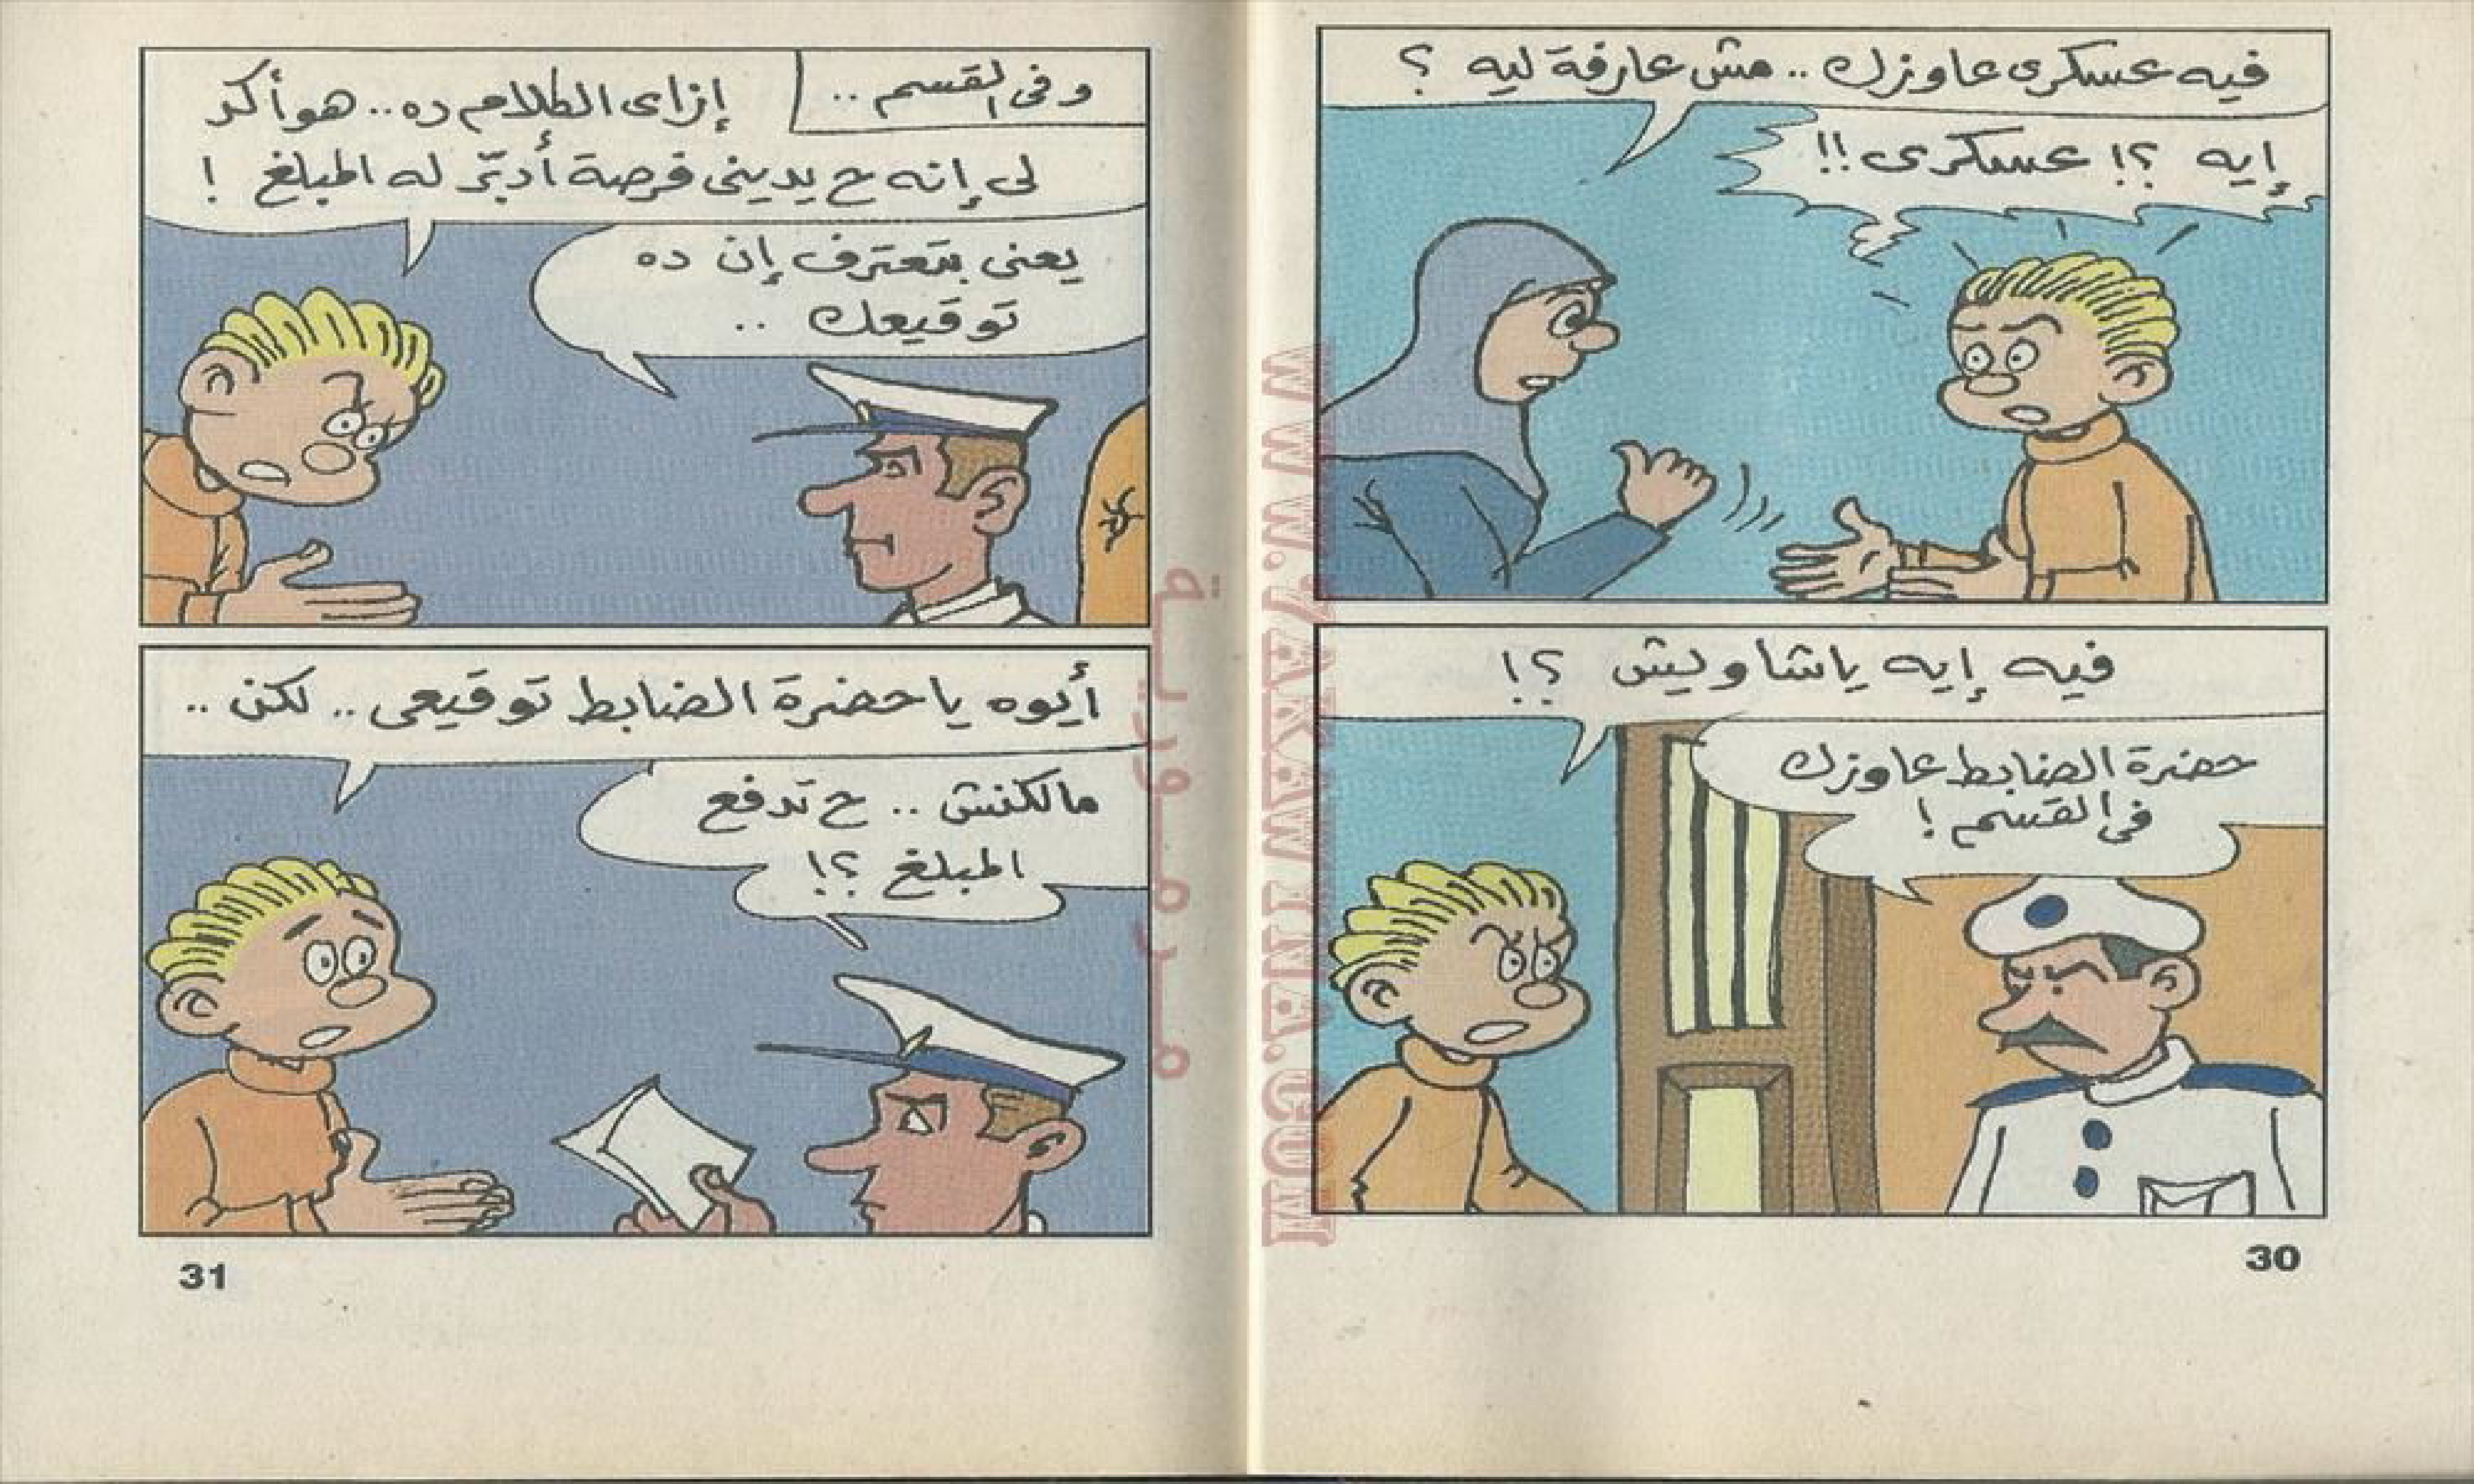 فيه عسكرى عاوزك .. مش عارفة ليه ؟
إيه ؟! عسكرى !!
فيه إيه ياشاويش ؟!
حضرة الضابط عاوزك
فى القسم !
30
وفى القسم ..
إزاى الكلام ده .. هو أكد
لى إنه ح يدينى فرصة أدبّر له المبلغ !
يعنى بتعترف إن ده
توقيعك ..
أيوه يا حضرة الضابط توقيعى .. لكن ..
مالكنش .. ح تدفع
المبلغ ؟!
31